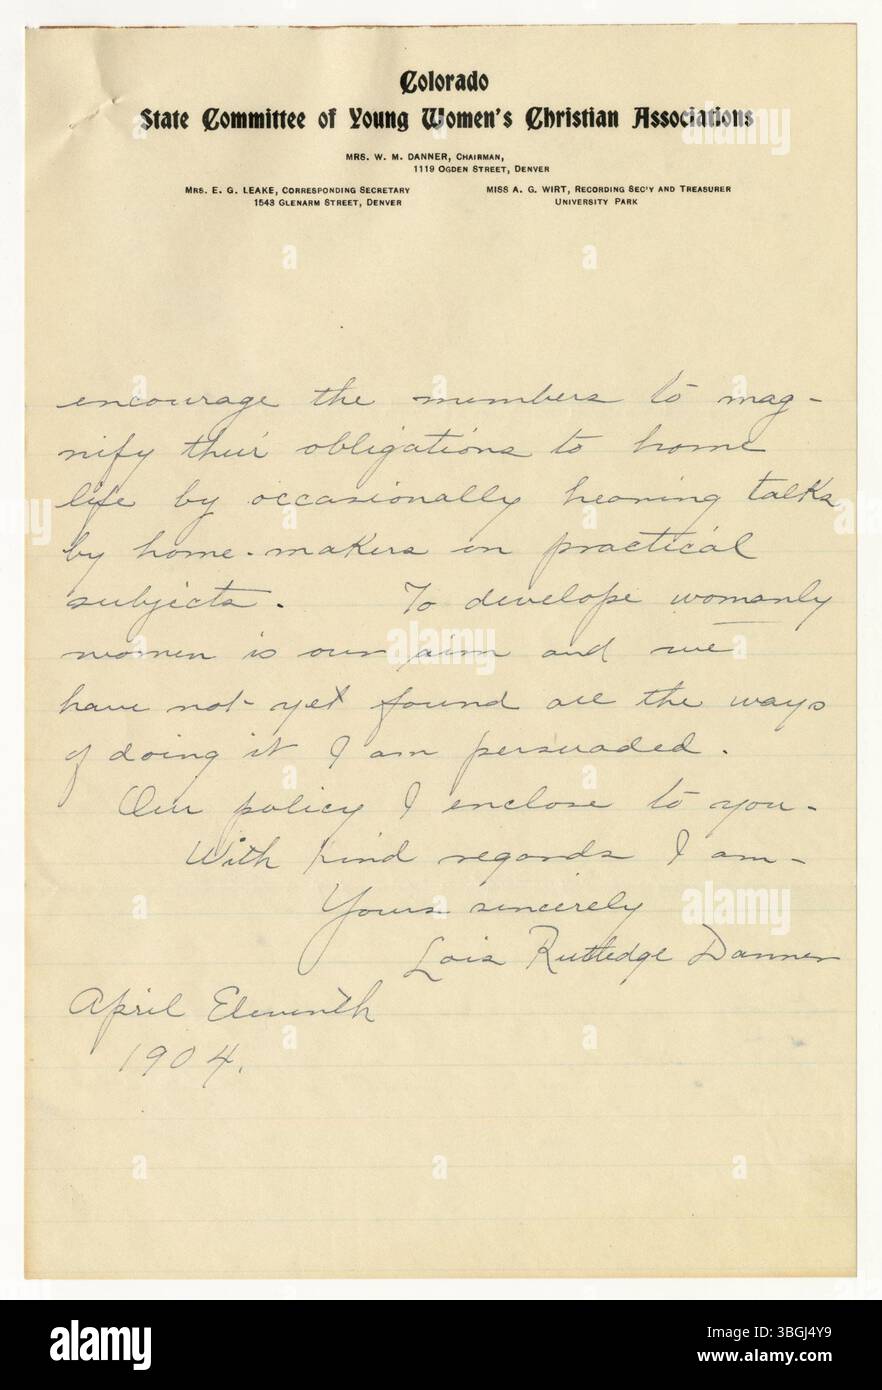 Colorado
State Committee of Young Women's Christian Associations
MRS. W. M. DANNER, CHAIRMAN,
1119 OGDEN STREET, DENVER
MRS. E. G. LEAKE, CORRESPONDING SECRETARY
1543 GLENARM STREET, DENVER
MISS A. G. WIRT, RECORDING SEC'Y AND TREASURER
UNIVERSITY PARK
encourage the members to mag-
nify their obligations to home
life by occasionally hearing talks
by home-makers on practical
subjects. To develope womanly
women is our aim and we
have not yet found all the ways
of doing it I am persuaded.
Our policy I enclose to you-
With kind regards I am-
Yours sincerely
Lois Rutledge Danner
April Eleventh
1904.
alamy
Image ID: 3BGJ4Y9
www.alamy.com